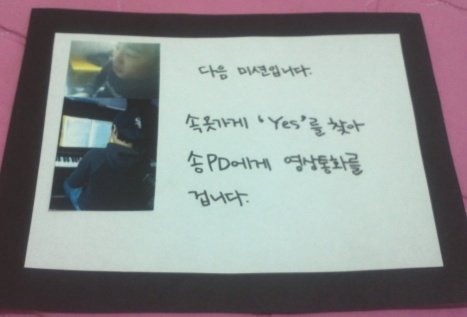 다음 미션입니다.
속옷가게 'Yes'를 찾아
송PD에게 영상통화를
겁니다.